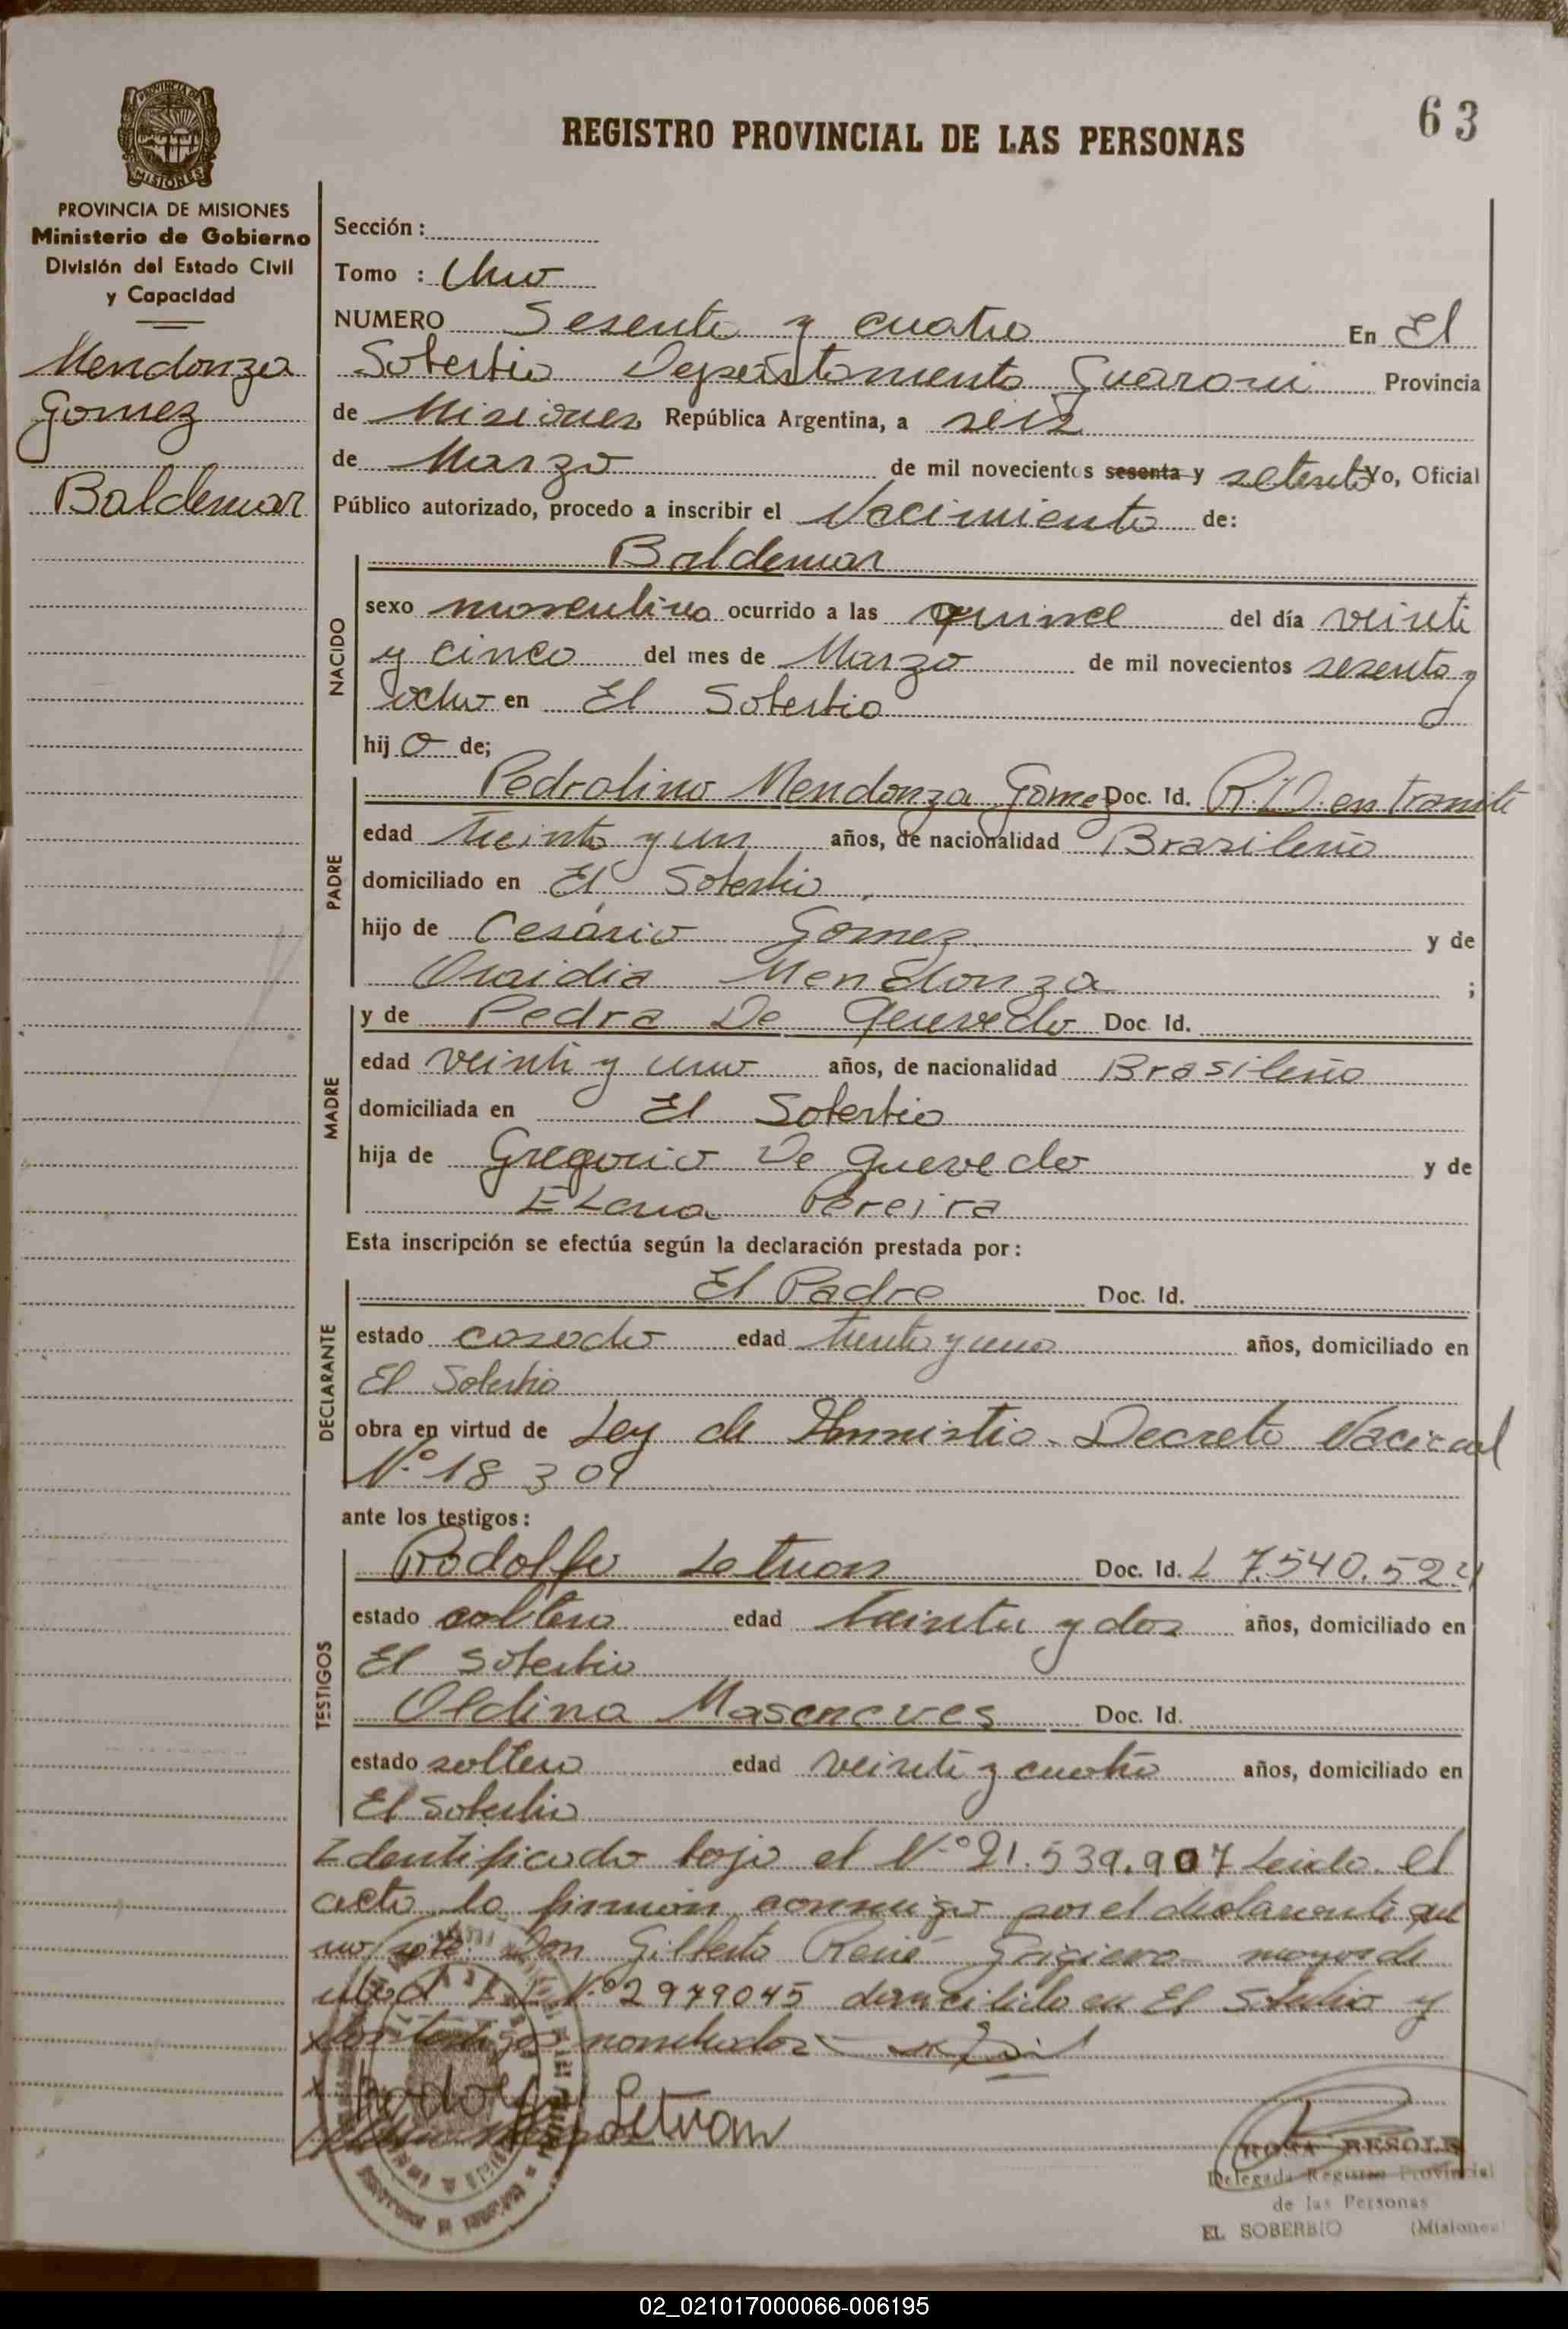 63
REGISTRO PROVINCIAL DE LAS PERSONAS
PROVINCIA DE
MISIONES
PROVINCIA DE MISIONES
Ministerio de Gobierno
División del Estado Civil
y Capacidad
Mendonza
Gomez
Baldemar
Sección :
Tomo : Uno
NUMERO Sesenta y cuatro En El
Soberbio Departamento Guarani Provincia
de Misiones República Argentina, a seis
de Marzo de mil novecientos sesenta y setenta Yo, Oficial
Público autorizado, procedo a inscribir el Nacimiento de:
NACIDO
Baldemar
sexo masculino ocurrido a las quince del día veinti
y cinco del mes de Marzo de mil novecientos sesenta y
ocho en El Soberbio
hij o de;
PADRE
Pedrolino Mendonza Gomez Doc. Id. R.D. en tramite
edad treinta y un años, de nacionalidad Brasileño
domiciliado en El Soberbio
hijo de Cesário Gomez y de
Mendonza ;
MADRE
y de Pedra De Quevedo Doc. Id.
edad veinti y uno años, de nacionalidad Brasileño
domiciliada en El Soberbio
hija de Gregorio De Quevedo y de
Elena Pereira
Esta inscripción se efectúa según la declaración prestada por :
DECLARANTE
El Padre Doc. Id.
estado casado edad treinta y uno años, domiciliado en
El Soberbio
obra en virtud de Ley de Amnistia. Decreto Nacional
N.º 18 3 09
ante los testigos :
TESTIGOS
Rodolfo Letuan Doc. Id. L 7.540.524
estado soltero edad treinta y dos años, domiciliado en
El Soberbio
Oldina Doc. Id.
estado soltero edad veinti y cuatro años, domiciliado en
El Soberbio
Identificado bajo el N.º 21.539.907 Leido el
acta la firman conmigo por el declarante que
no Don Gilberto René mayor de
edad N.º 2979045 domicilido en El Soberbio y
los testigos nombrados
Rodolfo Letuan
ROSA
Delegada Registro Provincial
de las Personas
EL SOBERBIO (Misiones)
02_021017000066-006195